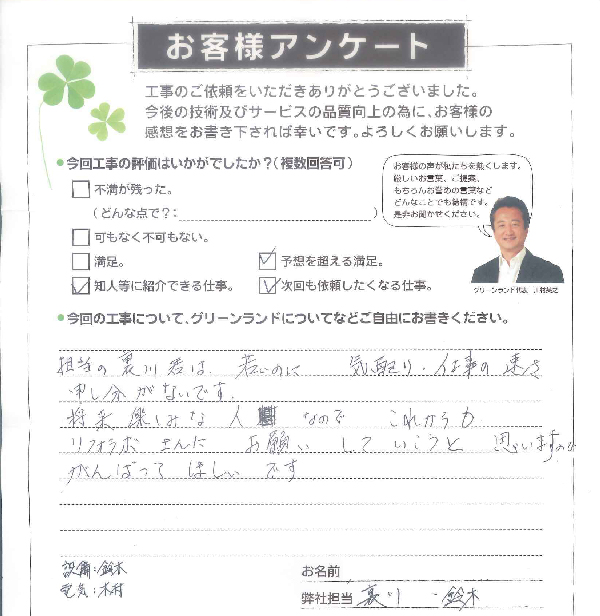 お客様アンケート
工事のご依頼をいただきありがとうございました。
今後の技術及びサービスの品質向上の為に、お客様の
感想をお書き下されば幸いです。よろしくお願いします。
●今回工事の評価はいかがでしたか?(複数回答可)
不満が残った。
(どんな点で?:)
可もなく不可もない。
満足。
予想を超える満足。
知人等に紹介できる仕事。
次回も依頼したくなる仕事。
お客様の声が私たちを熱くします。
厳しいお言葉、ご提案、
もちろんお誉めの言葉など
どんなことでも結構です。
是非お聞かせください。
グリーンランド代表
●今回の工事について、グリーンランドについてなどご自由にお書きください。
担当の裏川君は、若いのに 気配り・仕事の速さ
申し分がないです。
将来楽しみな人 なので これからも
リフォラボさんに お願いして いこうと 思いますので
がんばって ほしいです
設備:鈴木
電気:木村
お名前
弊社担当 裏川 ・鈴木